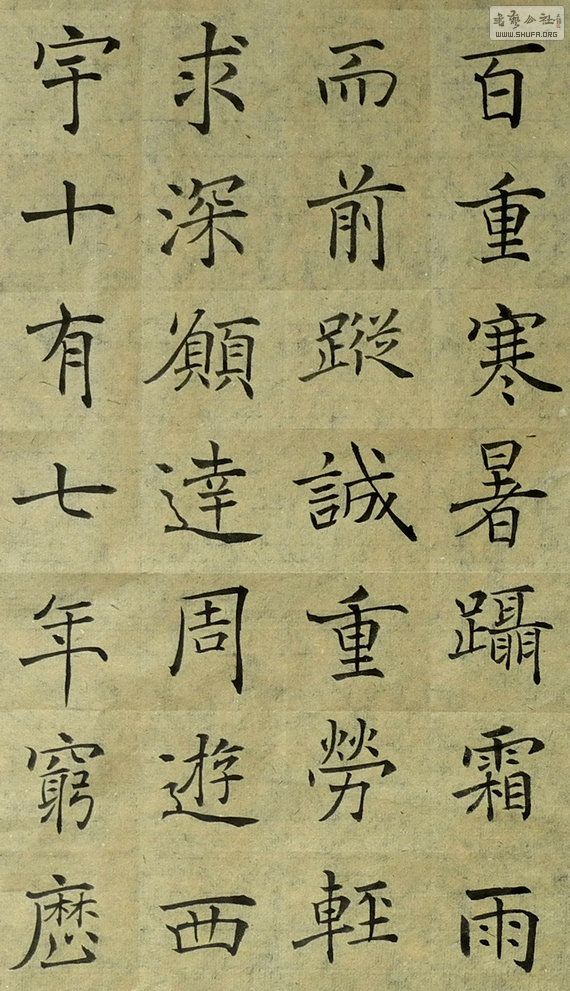 百重寒暑躡霜雨
而前蹤誠重勞輕
求深願達周遊西
宇十有七年窮歷
書藝公社
WWW.SHUFA.ORG